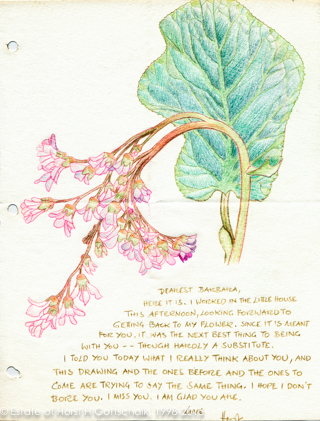 DEAREST BARBARA,
HERE IT IS. I WORKED IN THE LITTLE HOUSE
THIS AFTERNOON, LOOKING FORWARD TO
GETTING BACK TO MY FLOWER. SINCE IT IS MEANT
FOR YOU, IT WAS THE NEXT BEST THING TO BEING
WITH YOU -- THOUGH HARDLY A SUBSTITUTE.
I TOLD YOU TODAY WHAT I REALLY THINK ABOUT YOU, AND
THIS DRAWING AND THE ONES BEFORE AND THE ONES TO
COME ARE TRYING TO SAY THE SAME THING. I HOPE I DON'T
BORE YOU. I MISS YOU. I AM GLAD YOU ARE.
LOVE
Horst
© Estate of Horst H Gottschalk, 1998